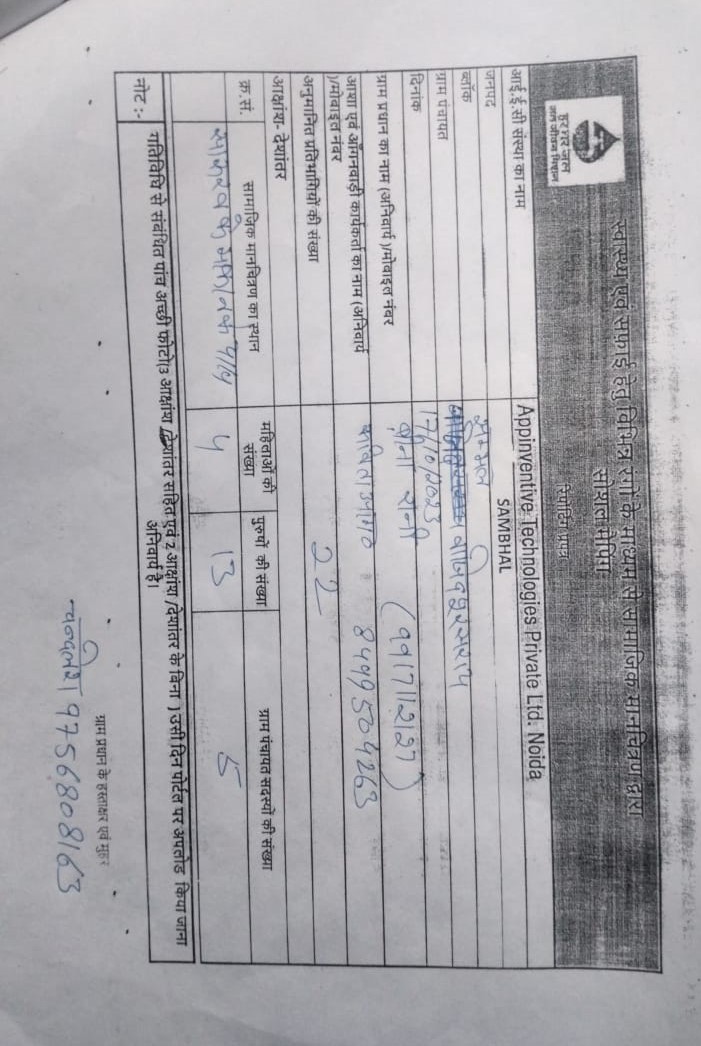 हर घर जल
जल जीवन मिशन
स्वास्थ्य एवं सफाई हेतु विभिन्न रंगों के माध्यम से सामाजिक मानचित्रण द्वारा
सोशल मैपिंग
रिपोर्टिंग प्रपत्र
आई.ई.सी संस्था का नाम Appinventive Technologies Private Ltd. Noida
जनपद SAMBHAL
ब्लॉक
ग्राम पंचायत
दिनांक 17/10/2023
ग्राम प्रधान का नाम (अनिवार्य )/मोबाइल नंबर रानी (9917112127)
आशा एवं आँगनवाड़ी कार्यकर्ता का नाम (अनिवार्य
)/मोबाइल नंबर 8449504263
अनुमानित प्रतिभागियों की संख्या 22
आक्षांय- देयांतर
क्र.सं. सामाजिक मानचित्रण का स्थान महिलाओं की संख्या पुरुषों की संख्या ग्राम पंचायत सदस्यों की संख्या
के मकान के पास 4 13 5
नोट :- गतिविधि से संबंधित पांच अच्छी फोटो(3 आक्षांय /देयांतर सहित एवं 2 आक्षांय /देयांतर के बिना ) उसी दिन पोर्टल पर अपलोड किया जाना
अनिवार्य है।
ग्राम प्रधान के हस्ताक्षर एवं मुहर
9756808163